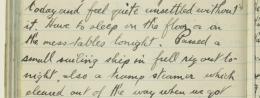 today and feel quite unsettled without
it. Have to sleep on the floor or on
the mess-tables tonight. Passed a
small sailing ship in full rig out to-
night, also a tramp steamer which
cleared out of the way when we got